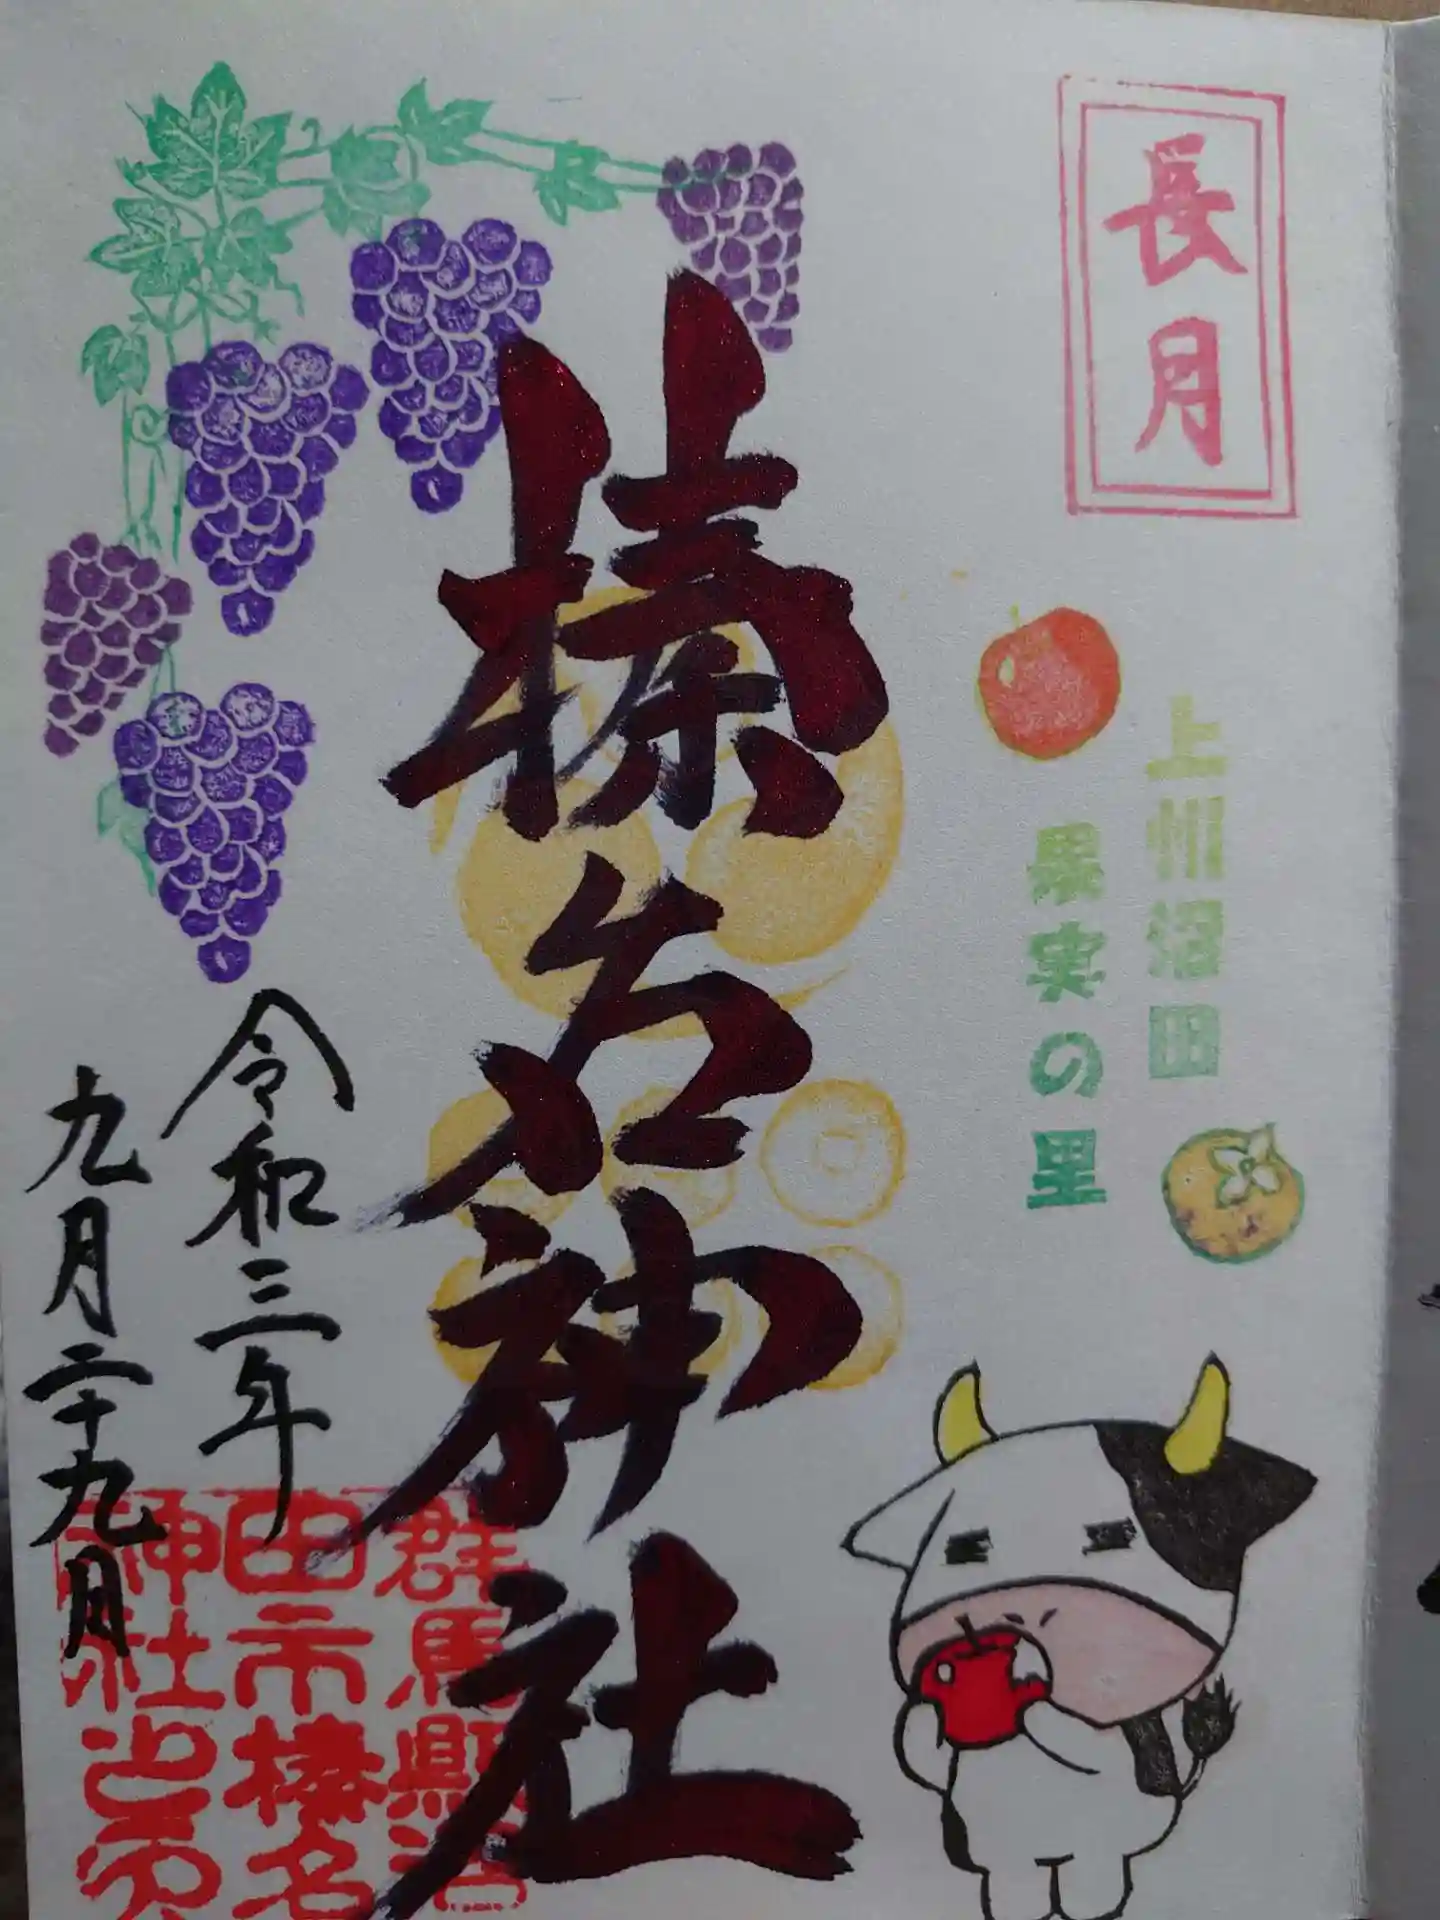 長月
上州沼田
果実の里
榛名神社
令和三年
九月二十九日
群馬縣沼
田市榛名
神社之